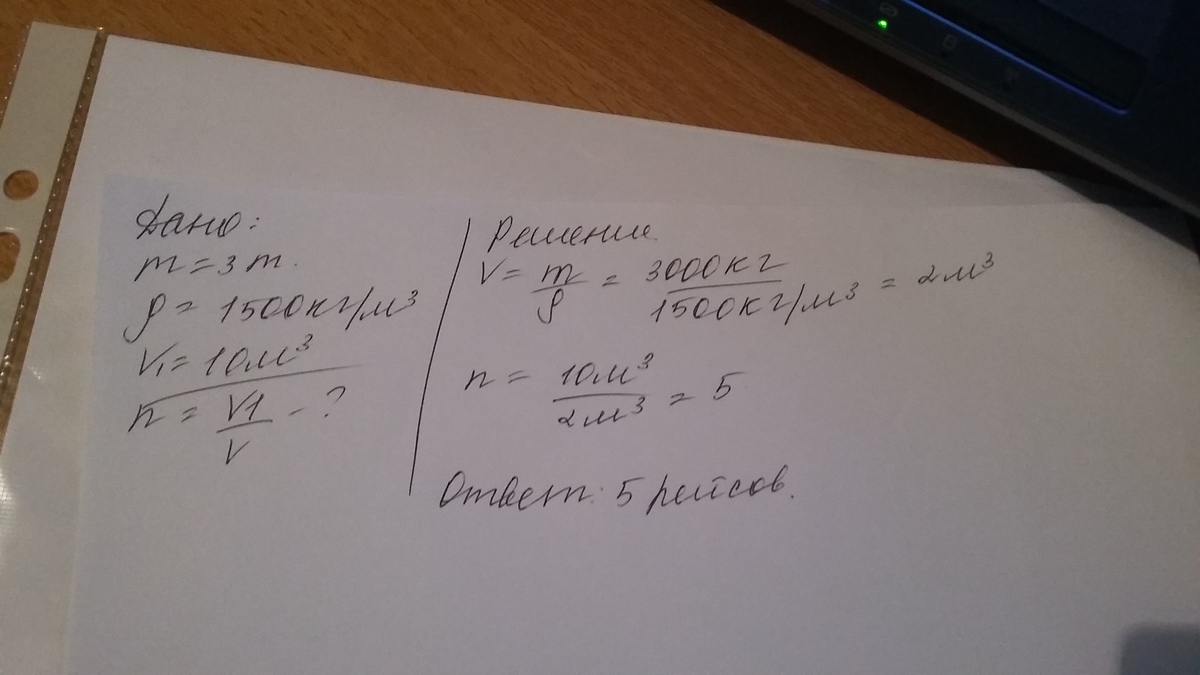 Дано:
m = 3 т.
ρ = 1500кг/м³
V₁ = 10м³
n = V1/V - ?
Решение
V = m/ρ = 3000кг/1500кг/м³ = 2м³
n = 10м³/2м³ = 5
Ответ: 5 рейсов.